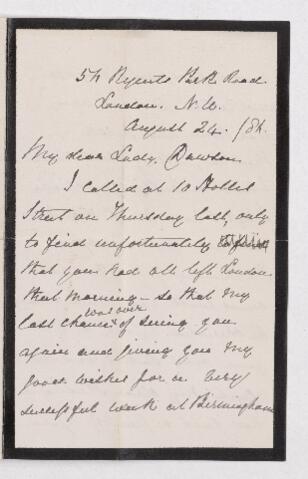 54 Regents Park Road
London. N.W.
August 24. /84.
My dear Lady Dawson
I called at 10 Holles
Street on Thursday last, only
to find unfortunately
that you had all left London
that morning - so that my
last chance was over of seeing you
again and giving you my
good wishes for a very
successful week at Birmingham